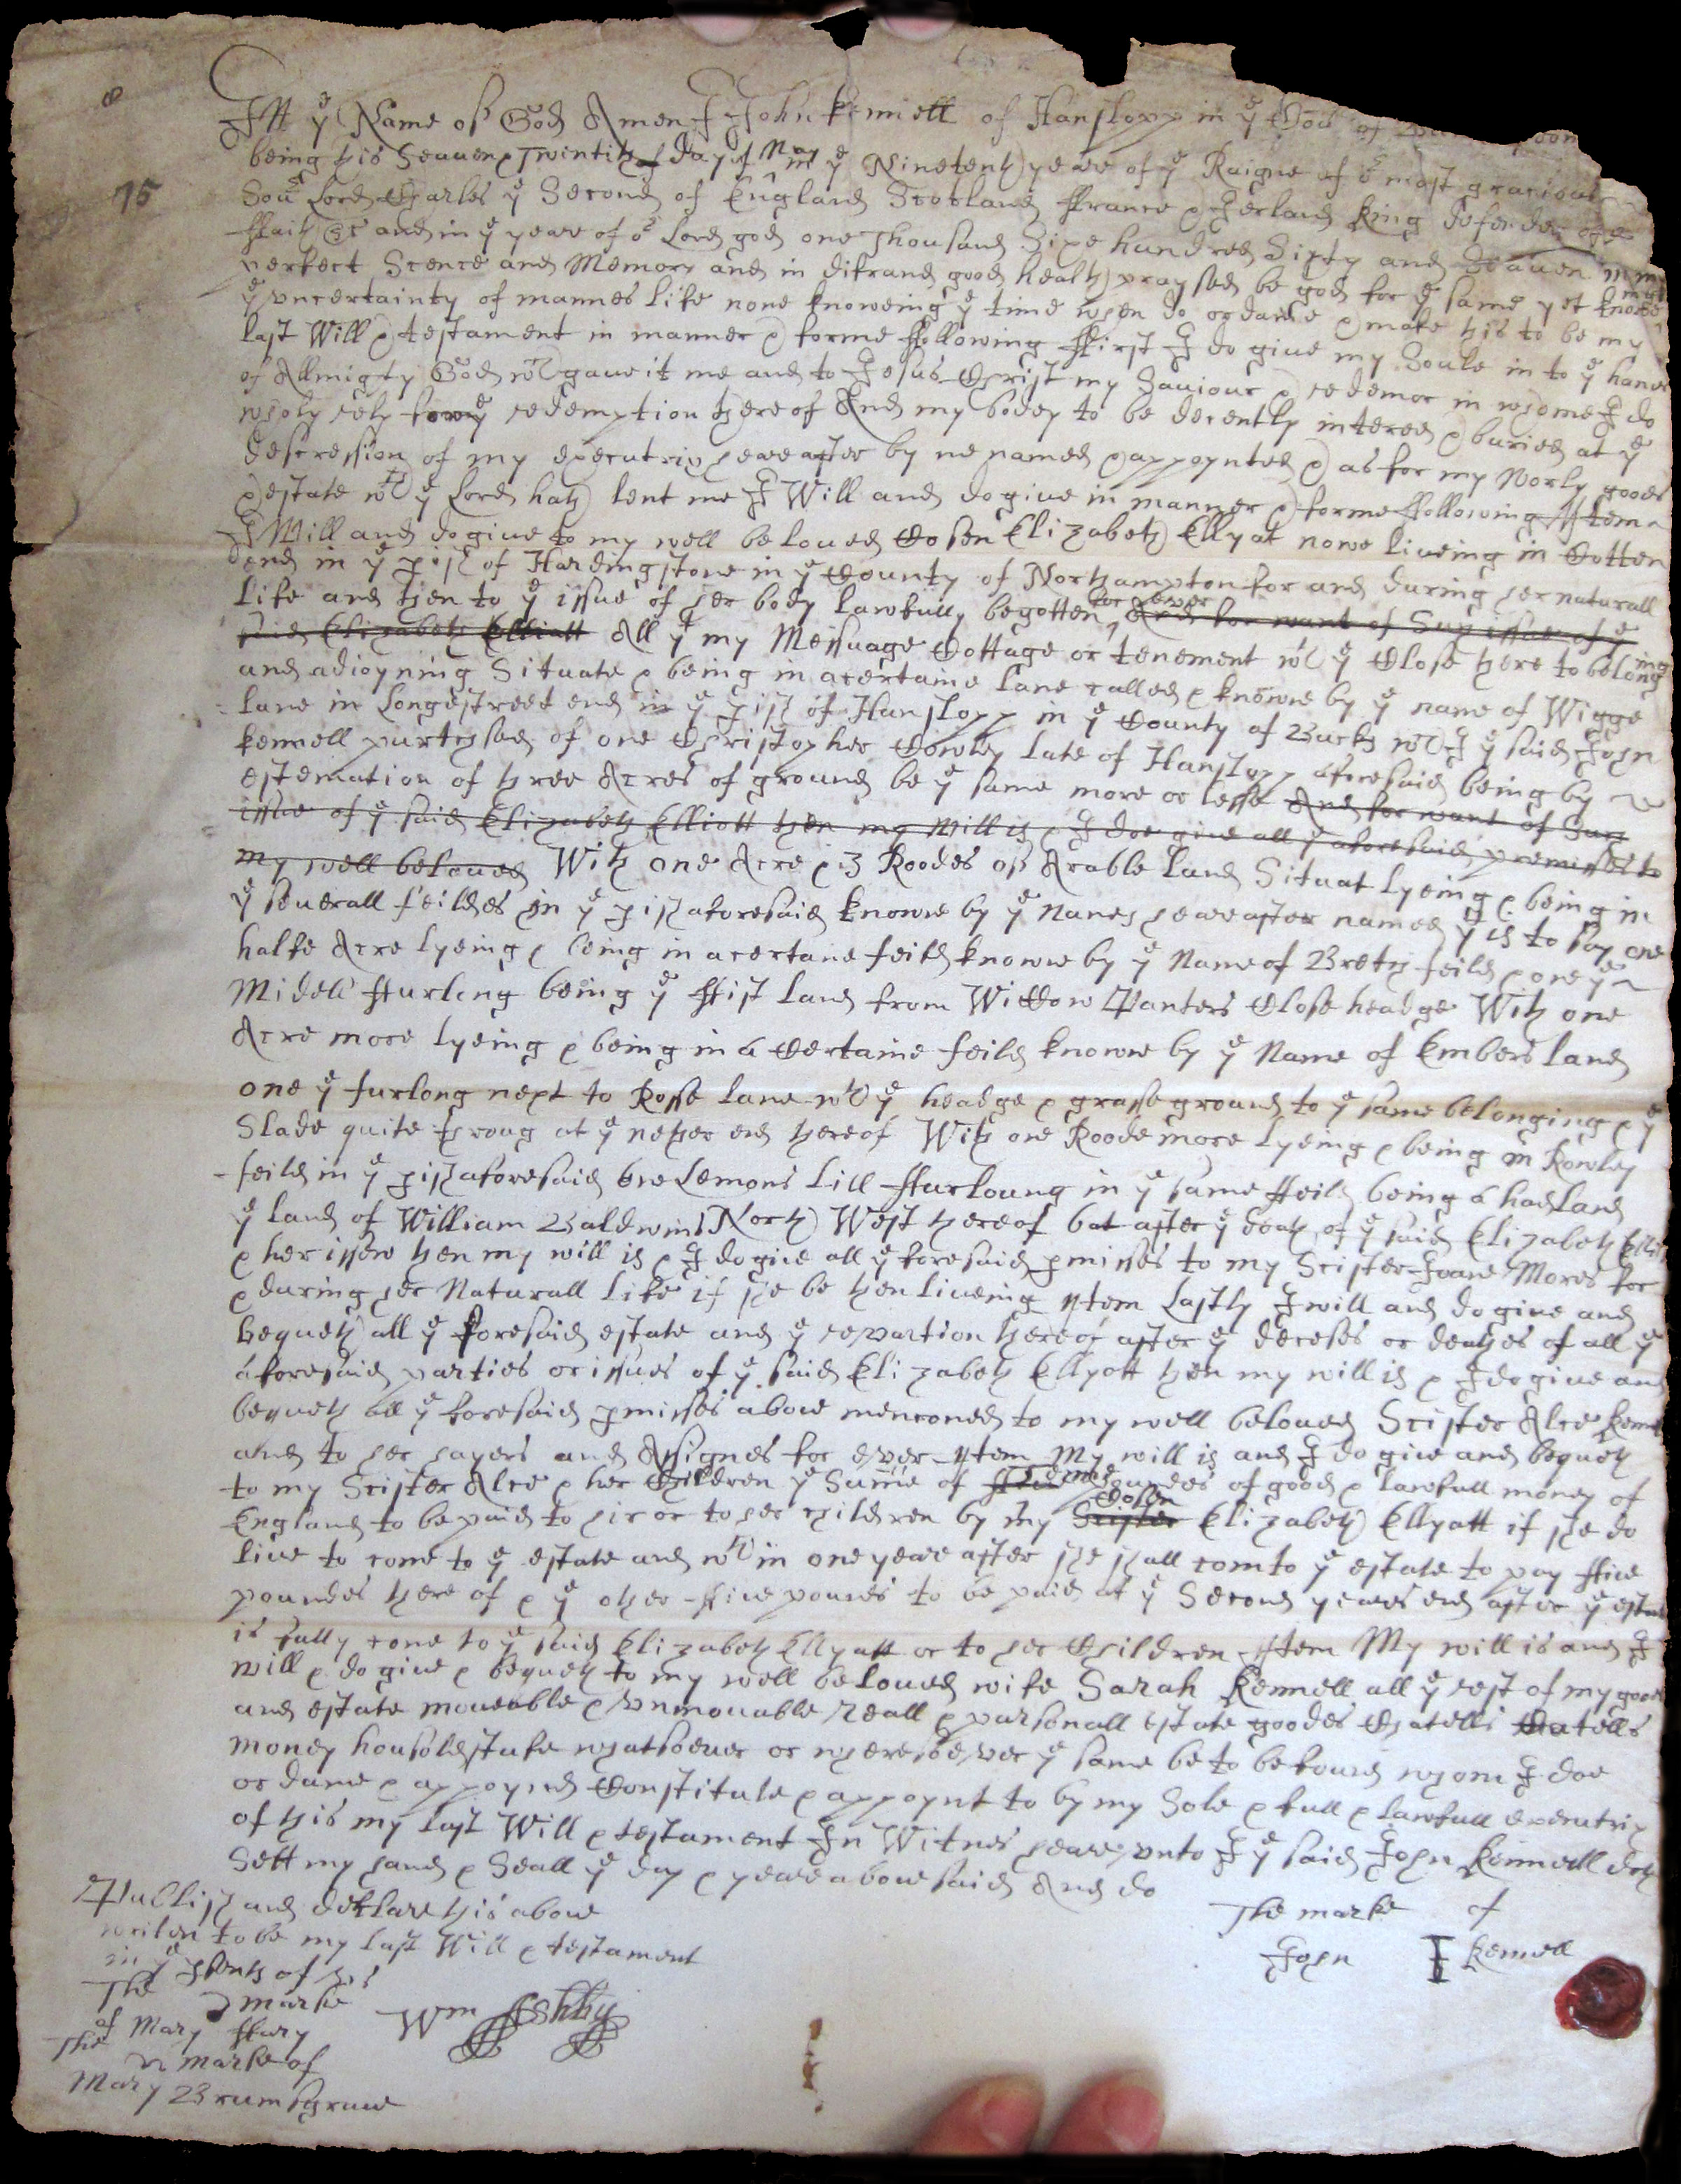 8
75
In ye Name of God Amen I John Kemell of Hanslopp in ye Cou of
being this Seaven & Twintith day of May in ye Ninetenth yeare of ye Raigne of or most gracious
Sou Lord Charles ye Second of England Scotland ffrance & Ierland King defender of ye
ffaith &c and in ye yeare of or Lord god one Thousand Sixe hundred Sixty and Seaven in my
perfect Scence and Memory and in good health praysed be god for ye same yet
ye uncertainty of mannes life none knoweing ye time when do ordaine & make this to be my
last Will & testament in manner & forme ffollowing ffirst I do give my Soule in to ye hands
of Allmighty God wch gave it me and to Jesus Christ my Saviour & redemor in whome I do
wholy rely for ye redemption thereof And my bodey to be decently intered & buried at ye
descression of my executrix heareafter by me named & appoynted & as for my Worly goods
& estate wch ye Lord hath lent me I Will and do give in manner & forme ffollowing Item
I Will and do give to my well beloved Cosen Elizabeth Ellyat nowe liveing in Cotten
End in ye pish of Hardingstone in ye County of Northampton for and during her naturall
life and then to ye issue of her body lawfully begotten for ever And for want of Such issue of ye
said Elizabeth Elliatt All yt my Messuage Cottage or tenement wth ye Close there to belonging
and adioyning Situate & being in a certaine lane called & knowne by ye name of Wigge
lane in Longestreet end in ye pish of Hanslopp in ye County of Bucks wch I ye said John
Kemell purchesed of one Christopher Cowley late of Hanslopp aforesaid being by
estemation of three Acres of ground be ye same more or lesse And for want of Such
issue of ye said Elizabeth Elliott then my Will is & I doe give all ye aforesaid premisses to
my well beloved With one Acre & 3 Roodes of Arable land Situat lyeing & being in
ye severall feildes in ye pish aforesaid knowne by ye Names heareafter named yt is to say one
halfe Acre lyeing & being in a certane feild knowne by ye Name of Breth feild & one ye
Midell ffurlong being ye ffist land from Widdow Panters Close headge With one
Acre more lyeing & being in a Certaine feild knowne by ye Name of Embers land
one ye furlong next to Rosse lane wth ye headge & grasse ground to ye same belonging & ye
Slade quite throug at ye nether end thereof With one Roode more lyeing & being in Rowley
feild in ye pish aforesaid one Lemons Lill ffurloung in ye same ffeild being a hadland
ye land of William Baldwins North West thereof but after ye death of ye said Elizabeth
& her issew then my will is & I do give all ye foresaid pmisses to my Scister Joane Mores for
& during her Naturall life if she be then liveing Item Lastly I will and do give and
bequeth all ye foresaid estate and ye revartion thereof after ye deceses or deathes of all ye
aforesaid parties or issues of ye said Elizabeth Ellyott then my will is & I do give and
bequeth all ye foresaid pmisses above mencioned to my well beloved Scister Alce
and to her hayers and Assignes for ever Item My will is and I do give and bequeth
to my Scister Alce & her Children ye Sume of poundes of good & lawfull money of
England to be paid to hir or to her children by my Scister Cosen Elizabeth Ellyatt if she do
live to come to ye estate and wth in one yeare after she shall com to ye estate to pay ffive
poundes there of & ye other ffive pounds to be paid at ye Second yeares end after ye estate
is fully come to ye said Elizabeth Ellyatt or to her Children Item My will is and I
will & do give & bequeth to my well beloved wife Sarah Kemell all ye rest of my goods
and estate moveable & unmovable reall & parsonall estate goodes Chatells Chatells
money housoldstufe whatsoever or wheresoever ye same be to be found whom I doe
ordaine & appoynd Constitute & appoynt to by my Sole & full & lawfull executrix
of this my last Will & testament In Witnes heareunto I ye said John Kemell doth
Sett my hand & Seall ye day & yeare above said And do
Publish and declare this above
writen to be my last Will & testament
in ye psenth of his
The marke of
John I Kemell
The marke
of Mary ffary
The marke of
Mary Brumsgrave
Wm Ashby